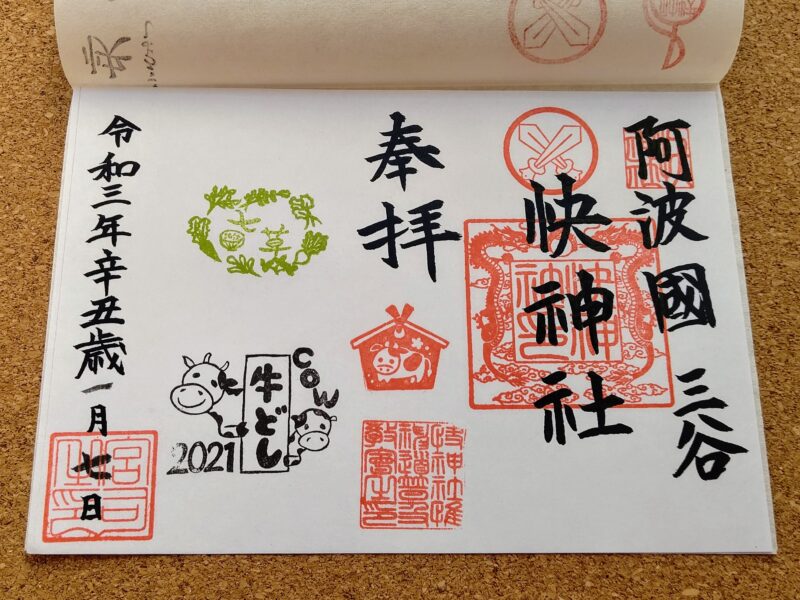 阿波國 三谷
快神社
奉拝
七草
牛どし
COW
2021
令和三年辛丑歳一月七日